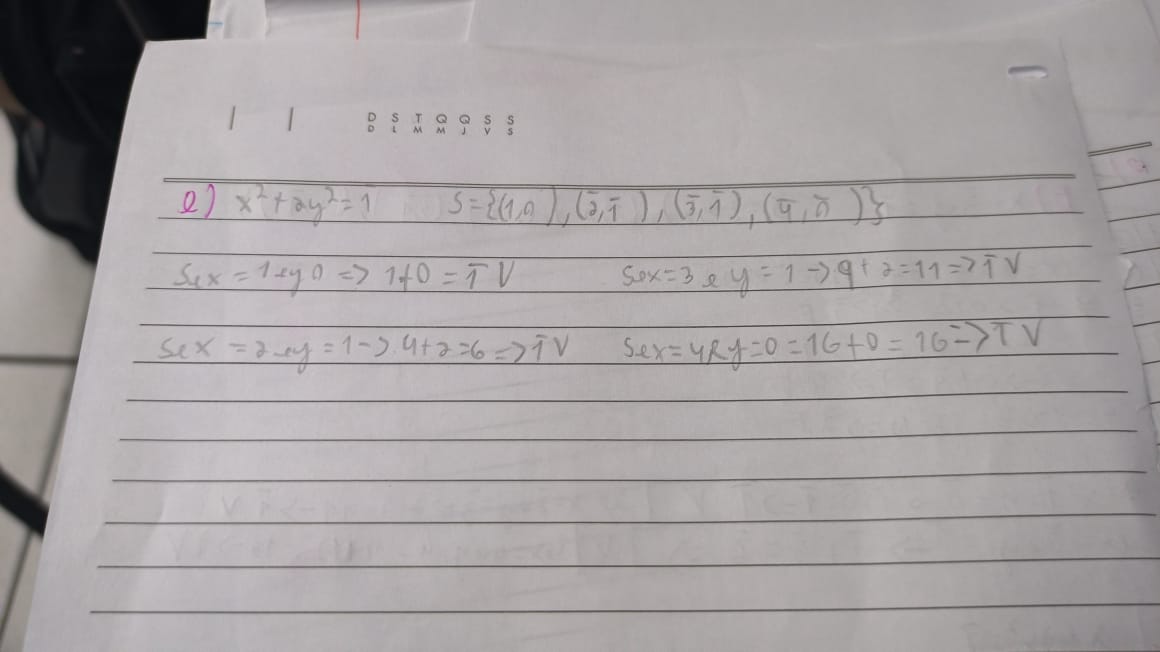 D S T Q Q S S
D L M M J V S
e) x² + 2y² = 1̄ S = {(1,0), (2̄,1̄), (3̄,1̄), (4̄,0̄)}
Se x = 1 e y 0 => 1+0 = 1̄ V Se x = 3 e y = 1 -> 9 + 2 = 11 => 1̄ V
Se x = 2 e y = 1 -> 4+2=6 => 1̄ V Se x=4 e y=0 = 16+0 = 16 => 1̄ V